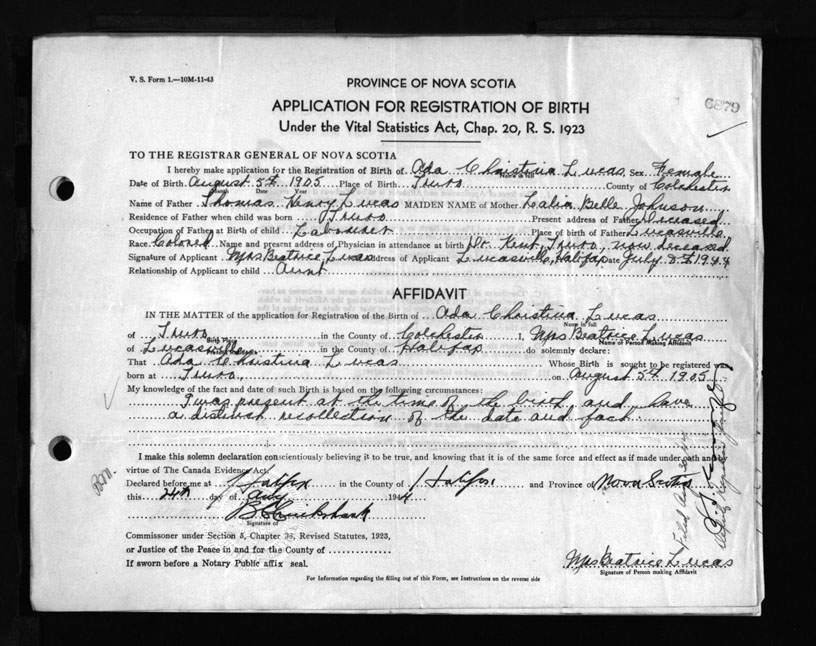 V. S. Form 1.—10M-11-43
PROVINCE OF NOVA SCOTIA
6879
APPLICATION FOR REGISTRATION OF BIRTH
Under the Vital Statistics Act, Chap. 20, R. S. 1923
TO THE REGISTRAR GENERAL OF NOVA SCOTIA
I hereby make application for the Registration of Birth of Ada Christina Lucas Sex Female
Date of Birth August 5th 1905 Place of Birth Truro County of Colchester
Name of Father Thomas Henry Lucas MAIDEN NAME of Mother Lalia Belle Johnson
Residence of Father when child was born Truro Present address of Father Deceased
Occupation of Father at Birth of child Labourer Place of birth of Father Lucasville
Race Colored Name and present address of Physician in attendance at birth Dr. Kent, Truro, now deceased
Signature of Applicant Mrs Beatrice Lucas Address of Applicant Lucasville, Halifax Date July 8th 1944
Relationship of Applicant to child Aunt
AFFIDAVIT
IN THE MATTER of the application for Registration of the Birth of Ada Christina Lucas
Name in full
of Truro in the County of Colchester I, Mrs Beatrice Lucas
Birth Place Name of Person Making Affidavit
of Lucasville in the County of Halifax do solemnly declare:
That Ada Christina Lucas Whose Birth is sought to be registered was
born at Truro, on August 5th 1905
My knowledge of the fact and date of such Birth is based on the following circumstances:
I was present at the time of the birth, and have
a distinct recollection of the date and fact.
I make this solemn declaration conscientiously believing it to be true, and knowing that it is of the same force and effect as if made under oath and by
virtue of The Canada Evidence Act.
Declared before me at Halifax in the County of Halifax and Province of Nova Scotia
this 24th day of Aug 1944
Signature of
Commissioner under Section 5, Chapter 38, Revised Statutes, 1923,
or Justice of the Peace in and for the County of
If sworn before a Notary Public affix seal.
Mrs Beatrice Lucas
Signature of Person making Affidavit
For Information regarding the filling out of this Form, see Instructions on the reverse side